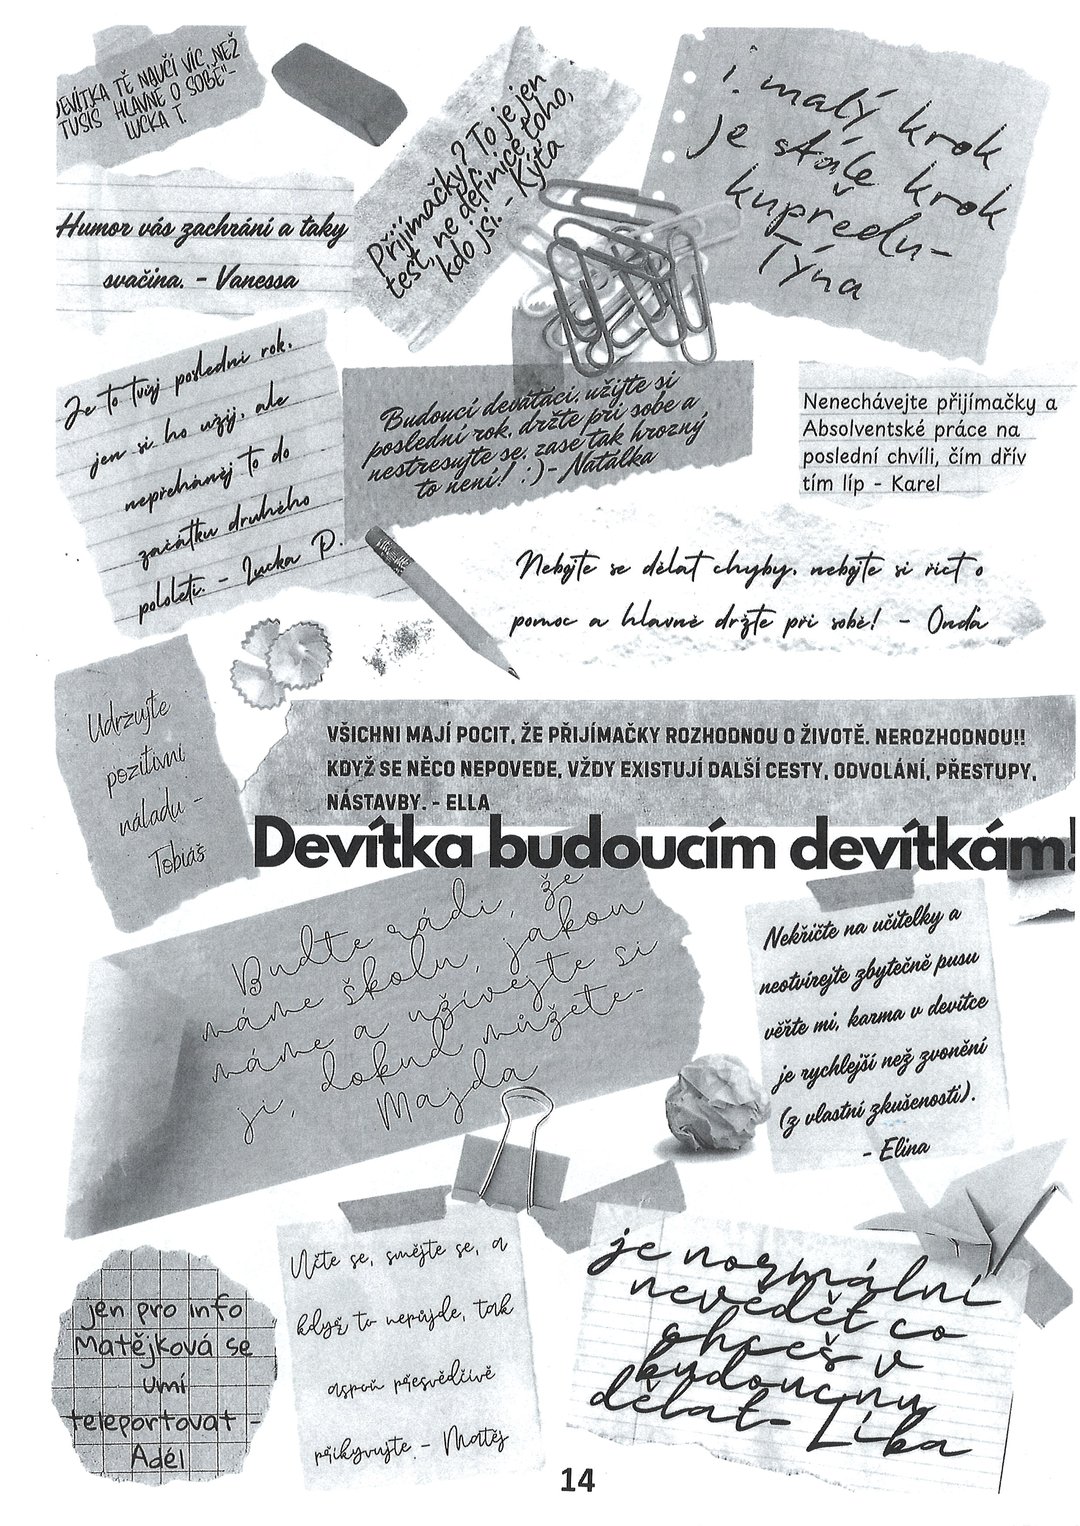 DEVÍTKA TĚ NAUČÍ VÍC, NEŽ
TUŠÍŠ HLAVNĚ O SOBĚ"-
LUCKA T.
Přijímačky? To je jen
test, ne definice toho,
kdo jsi. - Kýta
i malý krok
je stále krok
kupředu-
Týna
Humor vás zachrání a taky
svačina. - Vanessa
Je to tvůj poslední rok,
jen si ho užij, ale
nepřeháněj to do
začátku druhého
pololetí. - Lucka P.
Budoucí deváťáci, užijte si
poslední rok, držte při sobě a
nestresujte se, zase tak hrozný
to není! :)- Natálka
Nenechávejte přijímačky a
Absolventské práce na
poslední chvíli, čím dřív
tím líp - Karel
Nebojte se dělat chyby, nebojte si říct o
pomoc a hlavně držte při sobě! - Onda
Udržujte
pozitivní
náladu -
Tobiáš
VŠICHNI MAJÍ POCIT, ŽE PŘIJÍMAČKY ROZHODNOU O ŽIVOTĚ. NEROZHODNOU!!
KDYŽ SE NĚCO NEPOVEDE, VŽDY EXISTUJÍ DALŠÍ CESTY, ODVOLÁNÍ, PŘESTUPY,
NÁSTAVBY. - ELLA
Devítka budoucím devítkám!
Buďte rádi, že
máme školu, jakou
máme a užívejte si
ji, dokud můžete-
Majda
Nekřičte na učitelky a
neotvírejte zbytečně pusu
věřte mi, karma v devítce
je rychlejší než zvonění
(z vlastní zkušenosti).
- Elina
jen pro info
Matějková se
umí
teleportovat -
Adél
Učte se, smějte se, a
když to nepůjde, tak
aspoň přesvědčivě
přikyvujte - Matěj
je normální
nevědět co
chceš v
budoucnu
dělat- Líba
14